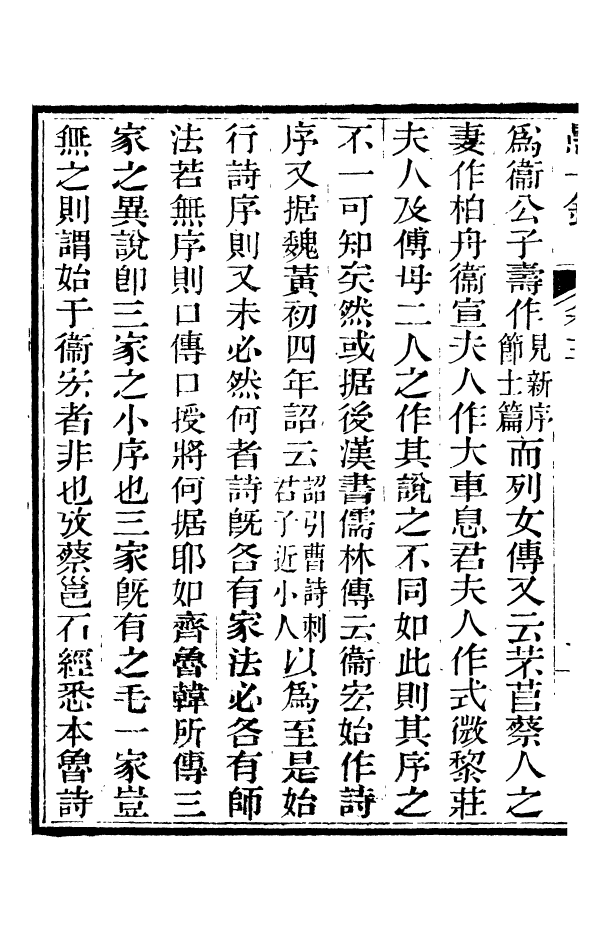 爲衞公子壽作見新序節士篇而列女傳又云芣苢蔡人之
妻作柏舟衞宣夫人作大車息君夫人作式微黎莊
夫人及傅母二人之作其說之不同如此則其序之
不一可知矣然或据後漢書儒林傳云衞宏始作詩
序又据魏黃初四年詔云詔引曹詩刺君子近小人以爲至是始
行詩序則又未必然何者詩旣各有家法必各有師
法若無序則口傳口授將何据耶如齊魯韓所傳三
家之異說卽三家之小序也三家旣有之毛一家豈
無之則謂始于衞宏者非也攷蔡邕石經悉本魯詩